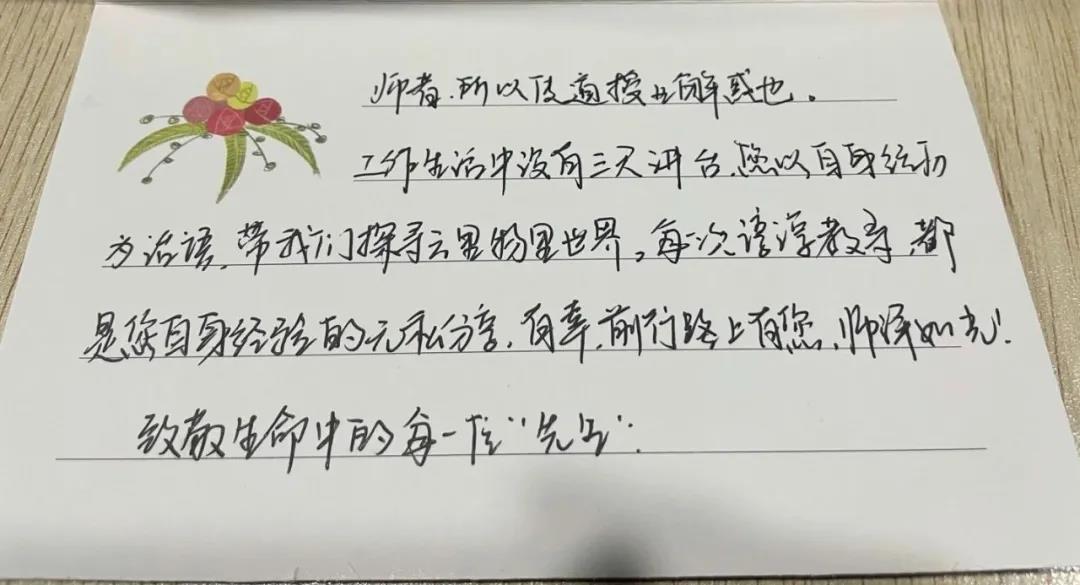 师者,所以传道授业解惑也。
工作生活中没有三尺讲台,您以自身经历
为话语,带我们探寻云里物里世界。每一次谆谆教导,都
是您自身经验的无私分享,有幸,前行路上有您,师泽如光!
致敬生命中的每一位“先生”.